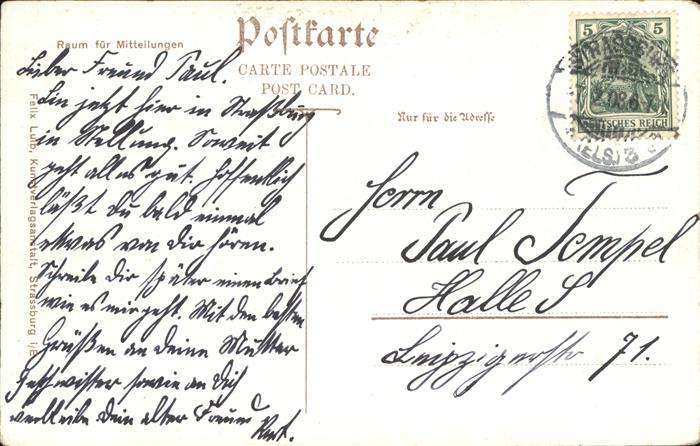 Raum für Mitteilungen
Postkarte
CARTE POSTALE
POST CARD.
Nur für die Adresse
Lieber Freund Paul.
Bin jetzt hier in Straßburg
in Stellung. Soweit
geht alles gut. Hoffentlich
läßt Du bald einmal
etwas von Dir hören.
Schreibe Dir später einen Brief
wie es mir geht. Mit den besten
Grüßen an Deine Mutter
Geschwister sowie an Dich
verbleibe Dein alter Freund
Kurt.
Felix Luib, Kunstverlagsanstalt, Strassburg i/E
5 5
DEUTSCHES REICH
STRASSBURG
(ELS.) 3
Herrn
Paul Tempel
Halle S
Leipzigerstr 71.